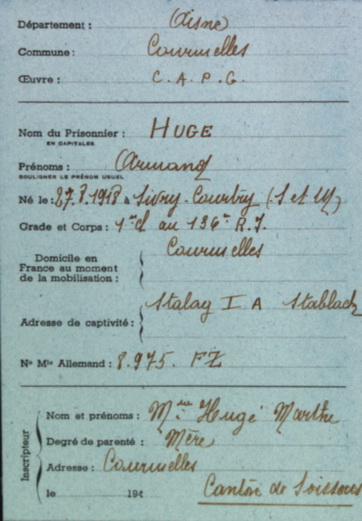 Département : Aisne
Commune : Courmelles
Œuvre : C.A.P.G.
Nom du Prisonnier : HUGE
EN CAPITALES
Prénoms : Armand
SOULIGNER LE PRÉNOM USUEL
Né le : 27.8.1918 à Sivry-Courtry (S et M)
Grade et Corps : 1re cl au 136e R.I.
Domicile en France au moment de la mobilisation : Courmelles
Adresse de captivité : Stalag I A Stablack
No Mle Allemand : 8.975. FZ
Inscripteur
Nom et prénoms : Mme Huge Marthe
Degré de parenté : Mère
Adresse : Courmelles
le 194
Canton de Soissons